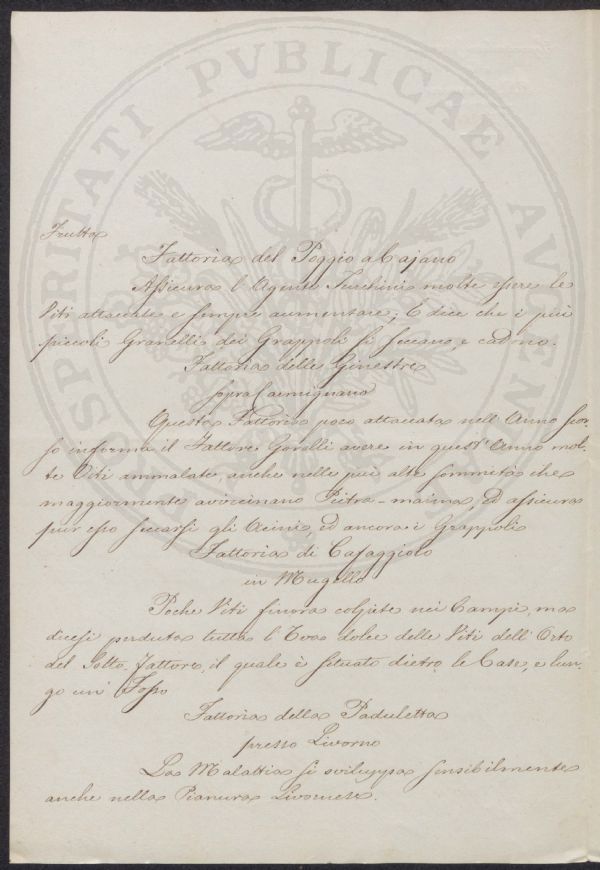 PROSPERITATI PVBLICAE AVGENDAE
Frutta
Fattoria del Poggio a Cajano
Assicura l'Agente Tucchini molte essere le
Viti attaccate e sempre aumentare; E dice che i più
piccoli Granelli dei Grappoli si seccano, e cadono.
Fattoria delle Ginestre
sopra Carmignano
Questa Fattoria poco attaccata nell'Anno scor-
so informa il Fattore Gorelli avere in quest'Anno mol-
te Viti ammalate, anche nelle più alte sommità che
maggiormente avvicinano Pietra-maina, ed assicura
pur esso seccarsi gli Acini ed ancora i Grappoli
Fattoria di Cafaggiolo
in Mugello
Poche Viti finora colpite nei Campi, ma
dicesi perduta tutta l'Uva dolce delle Viti dell'Orto
del Sotto Fattore, il quale è situato dietro le Case, e lun-
go un' Fosso
Fattoria della Paduletta
presso Livorno
La Malattia si sviluppa sensibilmente
anche nella Pianura Livornese.